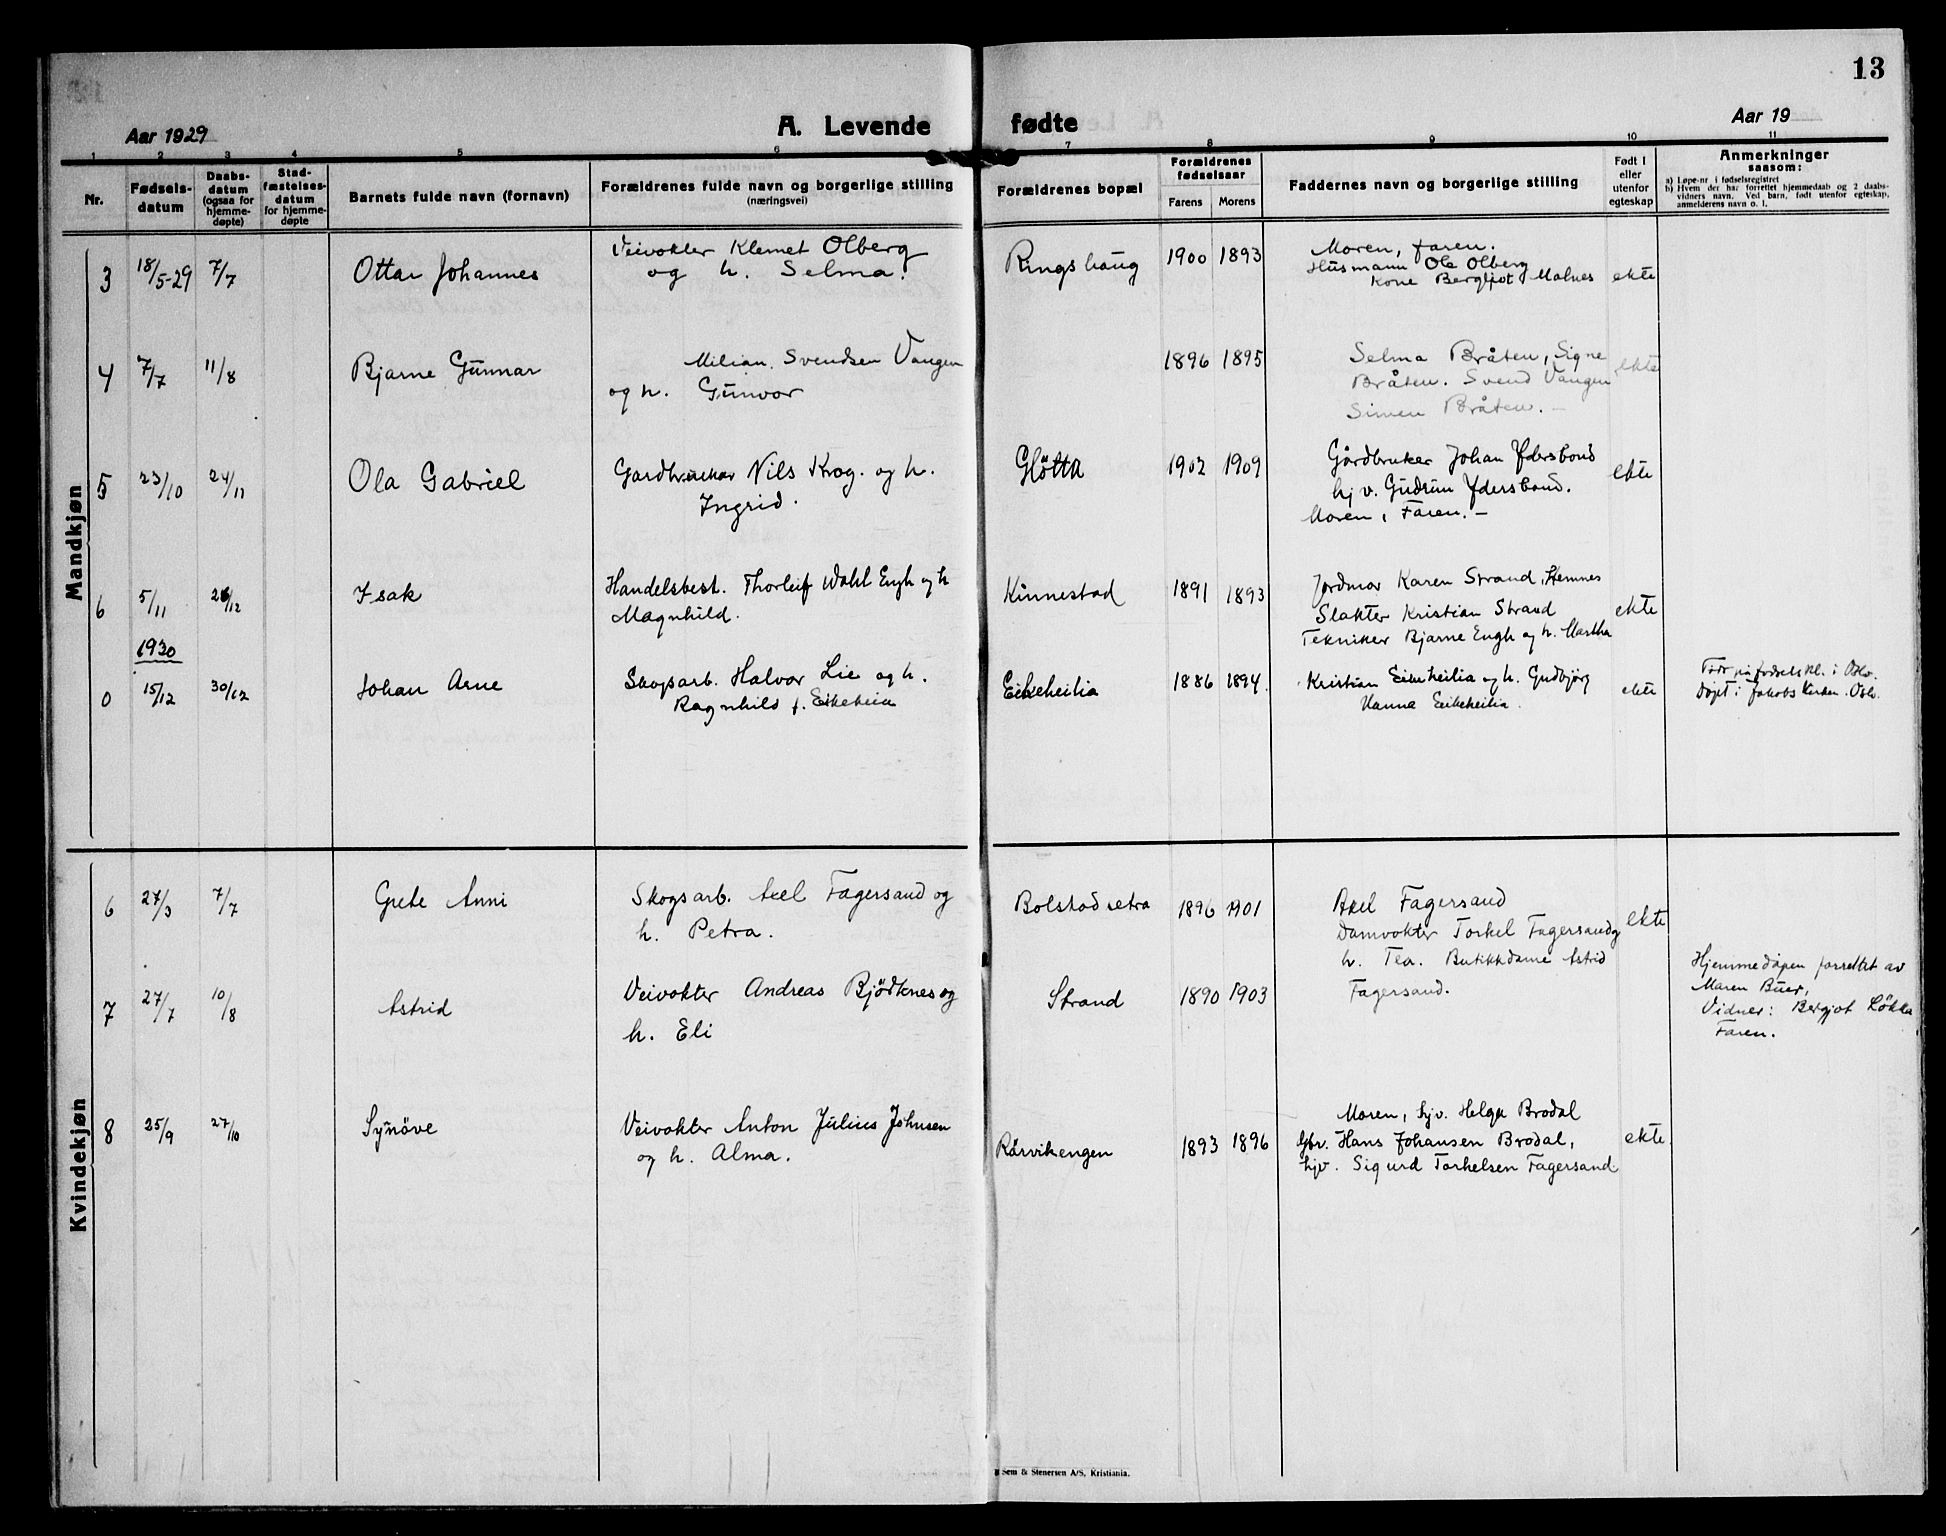 13
Aar 1929
A. Levende fødte
Aar 19
1 2 3 4 5 6 7 8 9 10 11
Nr.
Fødsels-
datum
Daabs-
datum
(ogsaa for
hjemme-
døpte)
Stad-
fæstelses-
datum
for hjemme-
døpte
Barnets fulde navn (fornavn)
Forældrenes fulde navn og borgerlige stilling
(næringsvei)
Forældrenes bopæl
Forældrenes
fødselsaar
Farens Morens
Faddernes navn og borgerlige stilling
Født i
eller
utenfor
egteskap
Anmerkninger
saasom:
a) Løpe-nr. i fødselsregistret
b) Hvem der har forrettet hjemmedaab og 2 daabs-
vidners navn. Ved barn, født utenfor egteskap,
anmelderens navn o. l.
Mandkjøn
3 18/5-29 7/7 Ottar Johannes
Veivokter Klemet Olberg
og h. Selma.
Ringshaug 1900 1893
Moren, faren.
Husmann Ole Olberg
Kone Bergljot Molnes
ekte
4 7/7 11/8 Bjarne Gunnar
Milian. Svendsen Vangen
og h. Gunvor
1896 1895
Selma Bråten, Signe
Bråten. Svend Vangen
Simen Bråten. —
ekte
5 23/10 24/11 Ola Gabriel
Gardbruker Nils Krog. og h.
Ingrid.
Gløtta 1902 1909
Gårdbruker Johan Ydersbond
hj v. Gudrun Ydersbond.
Moren, Faren. —
ekte
6 5/11 26/12 Isak
Handelsbest. Thorleif Wahl Engh og h
Magnhild.
Kinnestad 1891 1893
Jordmor Karen Strand, Hemnes
Slakter Kristian Strand
Tekniker Bjarne Engh og h. Martha
ekte
1930
0 15/12 30/12 Johan Arne
Skogsarb. Halvor Lie og h.
Ragnhild f. Eikeheia
Eikeheilia 1886 1894.
Kristian Eikeheilia og h. Gudbjørg
Hanna Eikeheilia.
ekte
Født på fødselskl. i Oslo.
Døpt i Jakobs Kirken. Oslo.
Kvindekjøn
6 27/3 7/7 Grete Anni
Skogsarb. Axel Fagersand og
h. Petra.
Bolstadsetra 1896 1901
Axel Fagersand
Damvokter Torkel Fagersand og
h. Tea. Butikkdame Astrid
Fagersand.
ekte
7 27/7 10/8 Astrid
Veivokter Andreas Bjødtknes og
h. Eli
Strand 1890 1903
Hjemmedåpen forrettet av
Maren Buer,
Vidner: Bergjot Løkka
Faren.
8 25/9 27/10 Synøve
Veivokter Anton Julius Johnsen
og h. Alma.
Rørvikengen 1893 1896
Moren, hjv. Helga Brodal
Gbr. Hans Johansen Brodal,
hjv. Sigurd Torkelsen Fagersand
ekte.
Sem & Stenersen A/S, Kristiania.